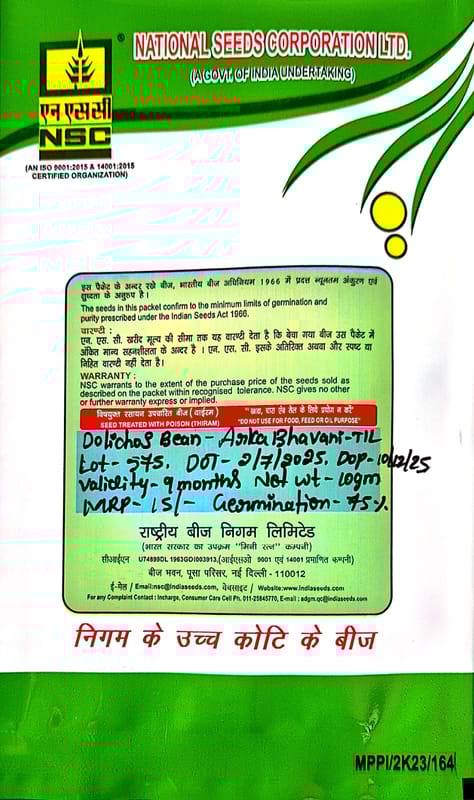 NATIONAL SEEDS CORPORATION LTD.
(A GOVT. OF INDIA UNDERTAKING)
एन एस सी
NSC
(AN ISO 9001:2015 & 14001:2015
CERTIFIED ORGANIZATION)
इस पैकेट के अन्दर रखे बीज, भारतीय बीज अधिनियम 1966 में प्रदत्त न्यूनतम अंकुरण एवं
शुध्दता के अनुरुप है।
The seeds in this packet confirm to the minimum limits of germination and
purity prescribed under the Indian Seeds Act 1966.
वारण्टी :
एन. एस. सी. खरीद मूल्य की सीमा तक यह वारण्टी देता है कि बेचा गया बीज उस पैकेट में
अंकित मान्य सहनशीलता के अन्दर है । एन. एस. सी. इसके अतिरिक्त अथवा और स्पष्ट या
निहित वारण्टी नहीं देता है।
WARRANTY :
NSC warrants to the extent of the purchase price of the seeds sold as
described on the packet within recognised tolerance. NSC gives no other
or further warranty express or implied.
विषयुक्त रसायन उपचारित बीज (थाईरम)
SEED TREATED WITH POISON (THIRAM)
"खाद्य, चारा एंव तेल के लिये प्रयोग न करें"
"DO NOT USE FOR FOOD, FEED OR OIL PURPOSE"
Dolichos Bean - Arka Bhavani - T/L
Lot - 575. DOT - 2/7/2025. Dop - 10/12/25
Validity - 9 months Net wt - 10gm
MRP - 15/- Germination - 75%.
राष्ट्रीय बीज निगम लिमिटेड
(भारत सरकार का उपक्रम "मिनी रत्न" कम्पनी)
सीआईएन U74899DL1963GOI003913, (आईएसओ 9001 एवं 14001 प्रमाणित कम्पनी)
बीज भवन, पूसा परिसर, नई दिल्ली - 110012
ई-मेल / Email:nsc@indiaseeds.com, वेबसाइट / Website:www.indiaseeds.com
For any Complaint Contact : Incharge, Consumer Care Cell Ph. 011-25845770, E-mail : adgm.qc@indiaseeds.com
निगम के उच्च कोटि के बीज
MPPI/2K23/164